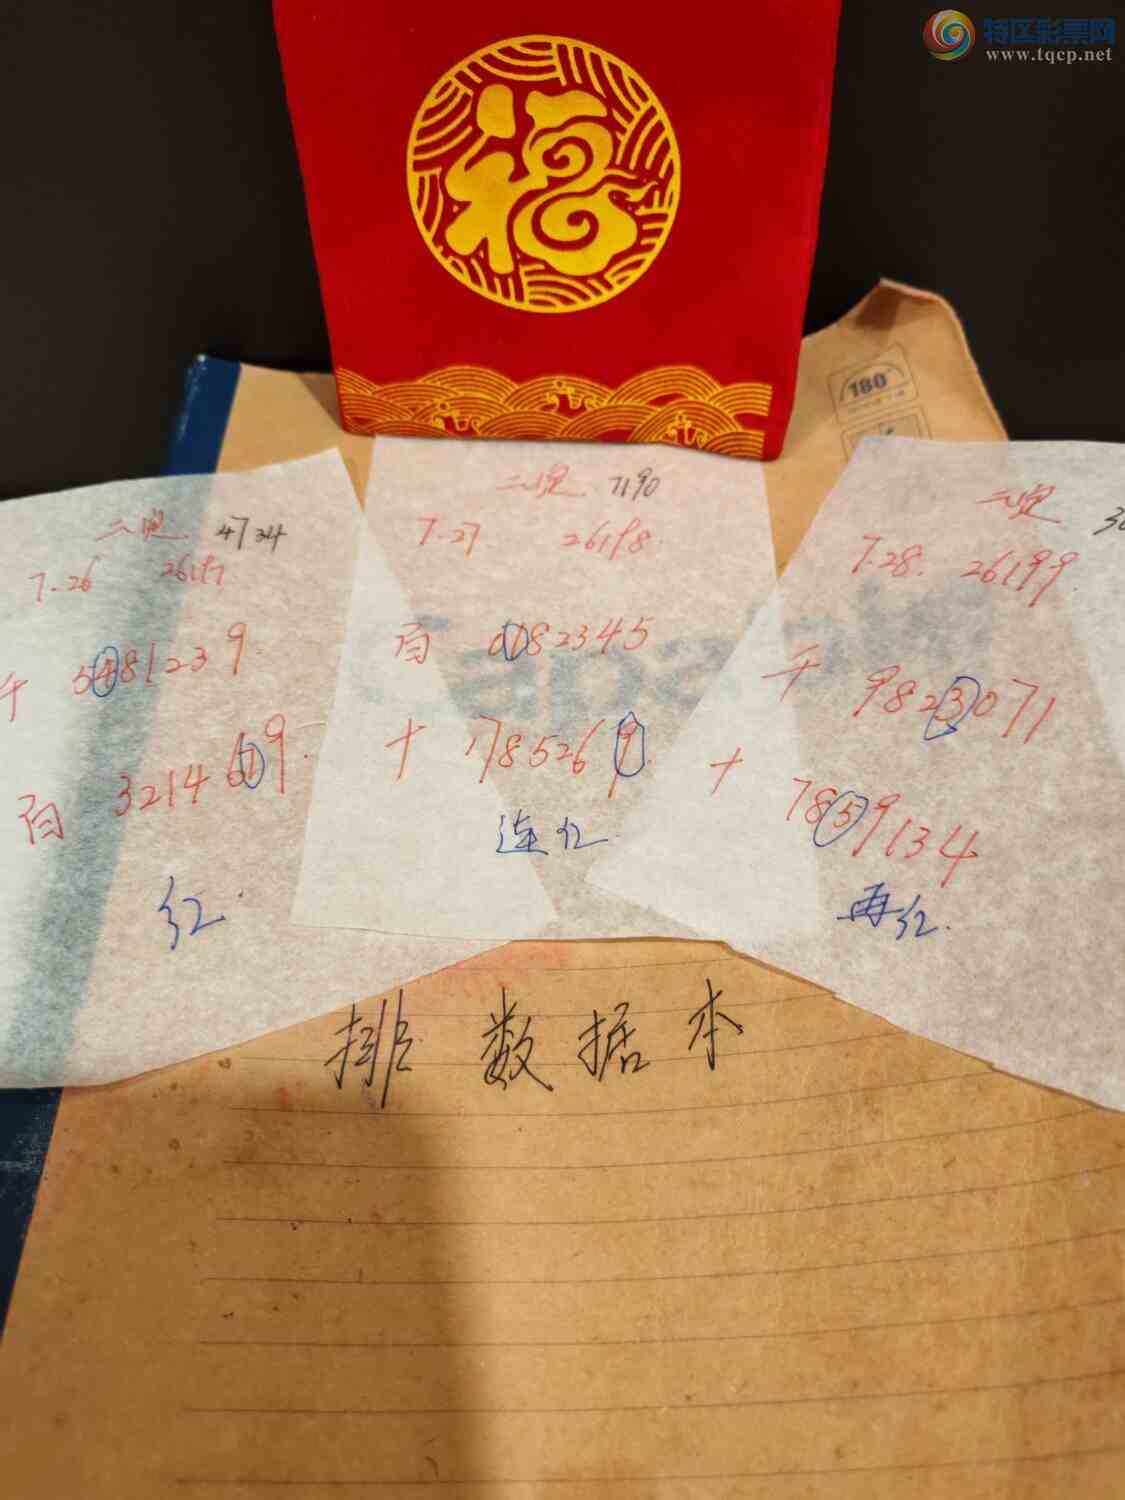 特区彩票网
www.tqcp.net
福
180°
二定 4734
7.26 26197
千 5481239
百 3214679
红.
二定 7190
7.27 26198.
百 0182345
十 1785269.
连红.
二定 30
7.28. 26199
千 9823071
十 7859134
再红.
排数据本